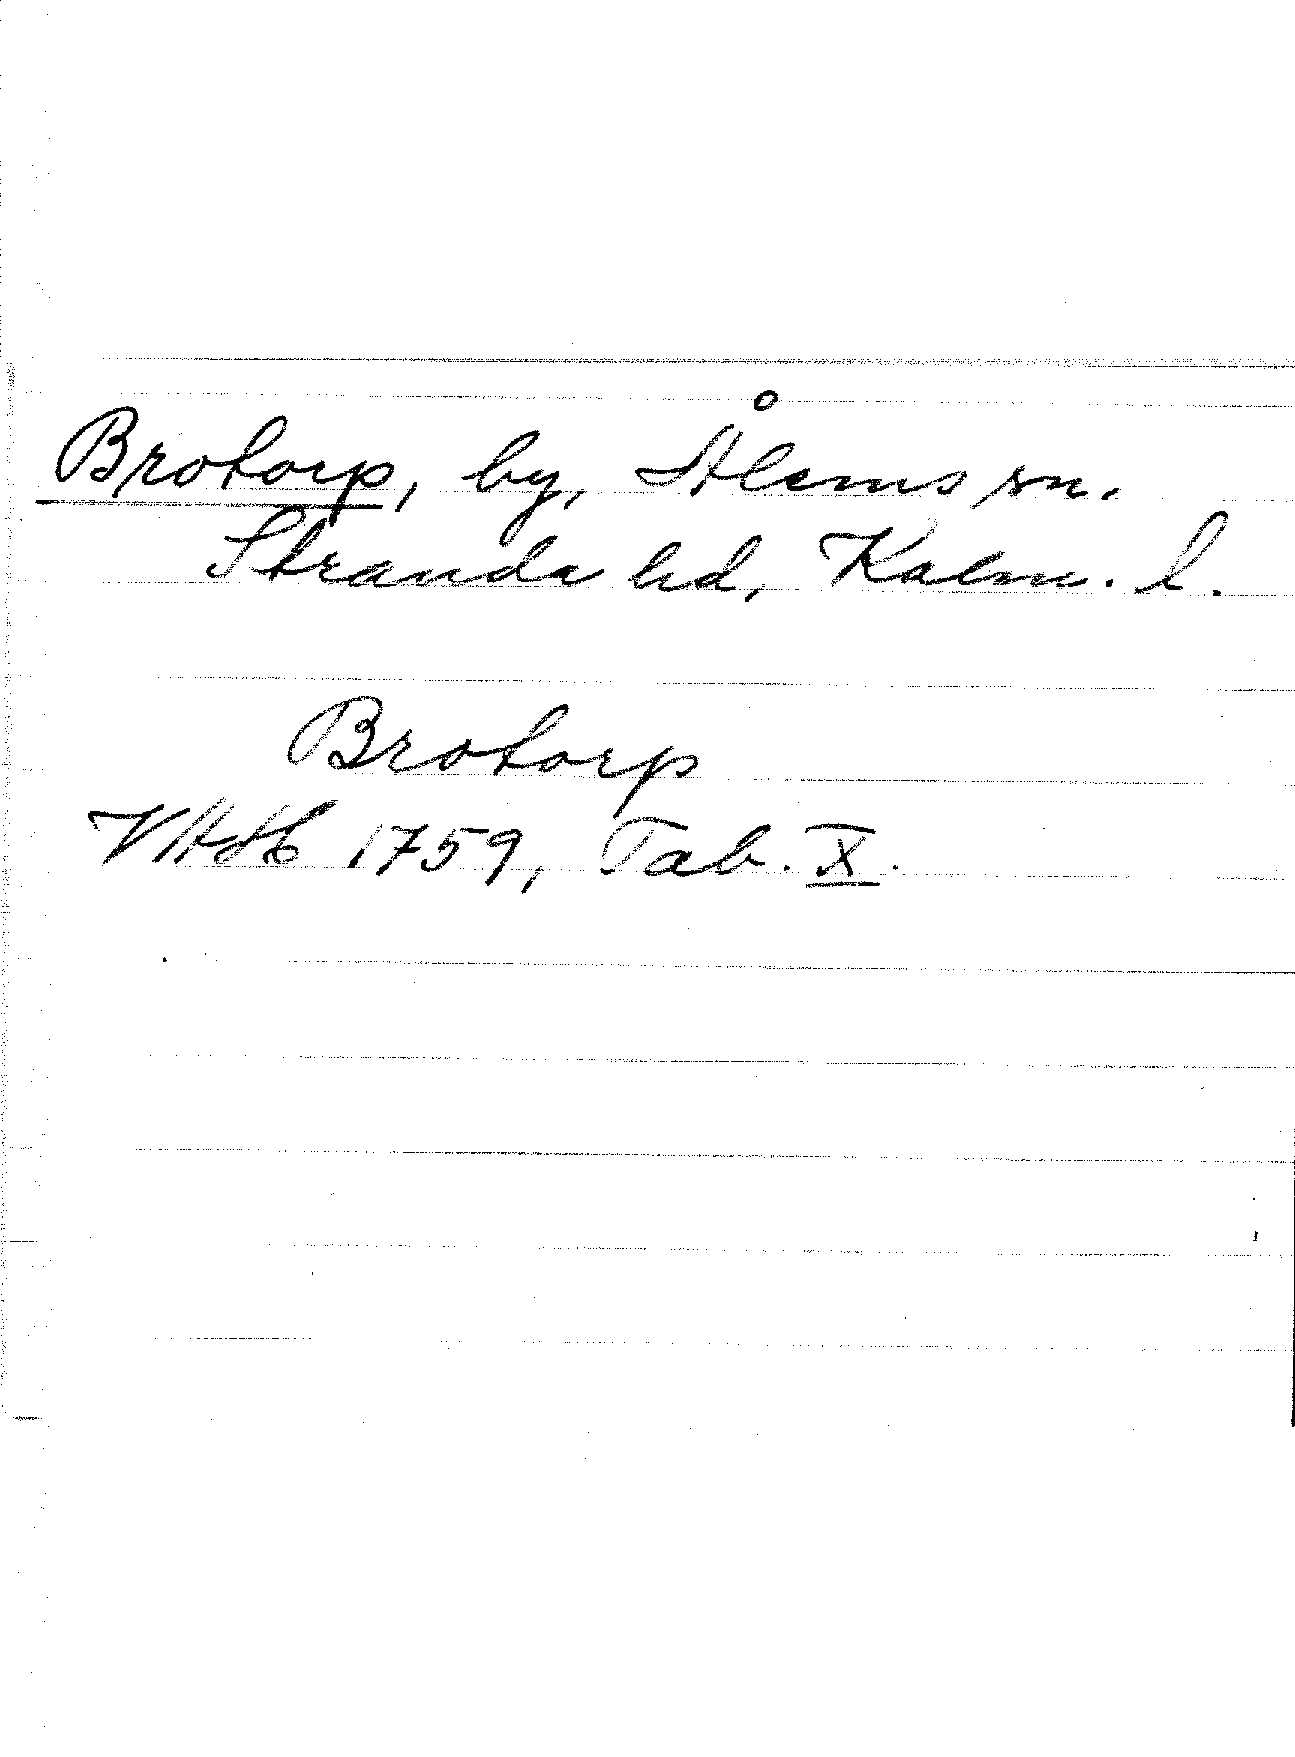 Brotorp, by, Ålems sn.
Stranda hd, Kalm. l.
Brotorp
VAH 1759, Tab. X.